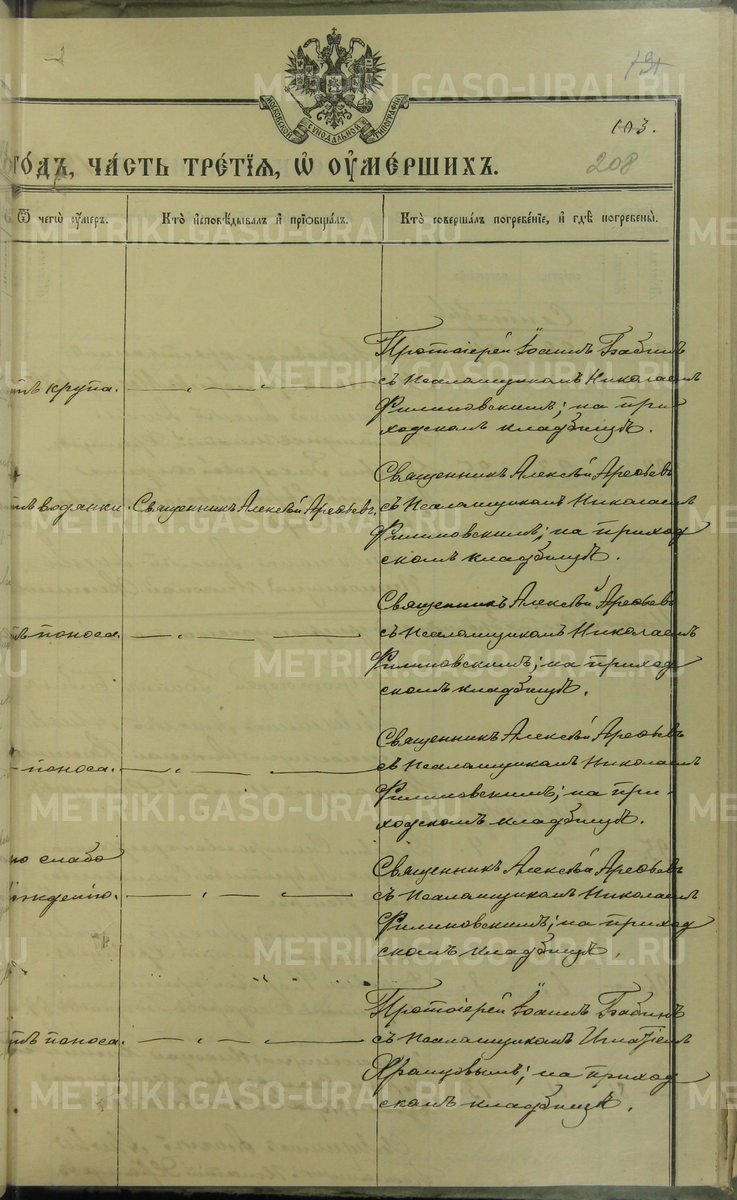 131
103.
208
МОСКОВСКОЙ СѴНОДАЛЬНОЙ ТИПОГРАФІИ
ГОДЪ, ЧА́СТЬ ТРЕ́ТІѦ, Ѡ҆ ОУ҆МЕ́РШИХЪ.
Ѿ чегѡ̀ ᲂу҆́меръ.
Кто̀ и҆сповѣ́дывалъ и҆ прїѡбща́лъ.
Кто̀ соверша́лъ погребе́нїе, и҆ гдѣ̀ погребены̀.
тъ крупа.
Протоіерей Іоаннъ Бабинъ
съ псаломщикомъ Николаемъ
Филиповскимъ; на при
ходскомъ кладбищѣ.
тъ водянки.
Священникъ Алексѣй Арефьевъ.
Священникъ Алексѣй Арефьевъ
съ псаломщикомъ Николаемъ
Филиповскимъ; на приход
скомъ кладбищѣ.
тъ поноса.
Священникъ Алексѣй Арефьевъ
съ псаломщикомъ Николаемъ
Филиповскимъ; на приход
скомъ кладбищѣ.
поноса.
Священникъ Алексѣй Арефьевъ
съ псаломщикомъ Николаемъ
Филиповскимъ; на при-
ходскомъ кладбищѣ.
по слабо
жденію.
Священникъ Алексѣй Арефьевъ
съ псаломщикомъ Николаемъ
Филиповскимъ; на приход
скомъ кладбищѣ.
тъ поноса.
Протоіерей Іоаннъ Бабинъ
съ псаломщикомъ Игнатіемъ
Храмцовымъ; на приход
скомъ кладбищѣ.
METRIKI.GASO-URAL.RU